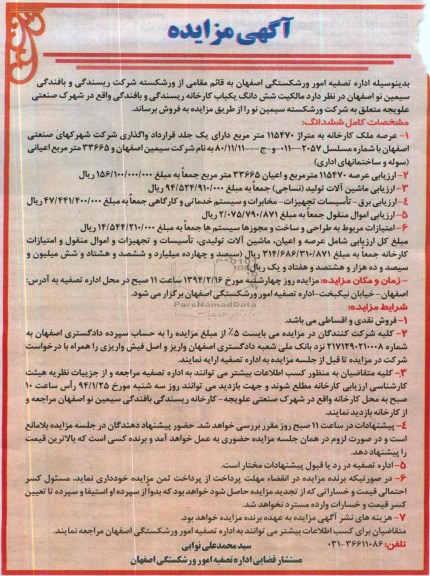 آگهی مزایده
بدینوسیله اداره تصفیه امور ورشکستگی اصفهان به قائم مقامی از ورشکسته شرکت ریسندگی و بافندگی
سیمین نو اصفهان در نظر دارد مالکیت شش دانگ یکباب کارخانه ریسندگی و بافندگی واقع در شهرک صنعتی
علویجه متعلق به شرکت ورشکسته سیمین نو را از طریق مزایده به فروش برساند.
مشخصات کامل ششدانگ:
۱- عرصه ملک کارخانه به متراژ ۱۱۵۴۷۰ متر مربع دارای یک جلد قرارداد واگذاری شرکت شهرکهای صنعتی
اصفهان با شماره مسلسل ۲۰۵۷-۰۱۱-و-ج-۸۰/۱۱/۱۱ به نام شرکت سیمین اصفهان و ۳۳۶۶۵ متر مربع اعیانی
(سوله و ساختمانهای اداری)
۲- ارزیابی عرصه ۱۱۵۴۷۰ مترمربع و اعیان ۳۳۶۶۵ متر مربع جمعاً به مبلغ ۱۵۶/۱۰۰/۰۰۰/۰۰۰ ریال
۳- ارزیابی ماشین آلات تولید (نساجی) جمعاً به مبلغ ۹۴/۵۲۴/۹۱۰/۰۰۰ ریال
۴- ارزیابی برق – تأسیسات تجهیزات- مخابرات و سیستم خدماتی و کارگاهی جمعاً به مبلغ ۴۷/۴۴۱/۴۰۰/۰۰۰ ریال
۵- ارزیابی اموال منقول جمعاً به مبلغ ۲/۰۷۵/۷۹۰/۸۷۱ ریال
۶- امتیازات مربوط به طراحی و ساخت و مجوزها سیستم ها جمعاً به مبلغ ۱۴/۵۴۴/۲۱۰/۰۰۰ ریال
مبلغ کل ارزیابی شامل عرصه و اعیان، ماشین آلات تولیدی، تأسیسات و تجهیزات و اموال منقول و امتیازات
کارخانه جمعاً به مبلغ ۳۱۴/۶۸۶/۳۱۰/۸۷۱ ریال (سیصد و چهارده میلیارد و ششصد و هشتاد و شش میلیون و
سیصد و ده هزار و هشتصد و هفتاد و یک ریال)
- زمان و مکان مزایده: مزایده روز چهارشنبه مورخ ۱۳۹۴/۲/۱۶ ساعت ۱۱ صبح در محل اداره تصفیه به آدرس:
اصفهان - خیابان نیکبخت-اداره تصفیه امور ورشکستگی اصفهان برگزار می شود.
شرایط مزایده:
۱- فروش نقدی و اقساطی می باشد.
۲- کلیه شرکت کنندگان در مزایده می بایست ۵٪ از مبلغ مزایده را به حساب سپرده دادگستری اصفهان به
شماره ۲۱۷۱۲۹۰۲۱۰۰۰۸ نزد بانک ملی شعبه دادگستری اصفهان واریز و اصل فیش واریزی را همراه با درخواست
شرکت در مزایده تا قبل از جلسه مزایده به اداره تصفیه ارایه نمایند.
۳- کلیه متقاضیان به منظور کسب اطلاعات بیشتر می توانند به اداره تصفیه مراجعه و از جزییات نظریه هیئت
کارشناسی ارزیابی کارخانه مطلع شوند و جهت بازدید می توانند روز سه شنبه مورخ ۹۴/۱/۲۵ رأس ساعت ۱۰
صبح به محل کارخانه واقع در شهرک صنعتی علویجه- کارخانه ریسندگی بافندگی سیمین نو اصفهان مراجعه و
از کارخانه بازدید نمایند.
۴- پیشنهادات در ساعت ۱۱ صبح روز مقرر بررسی خواهد شد. حضور پیشنهاد دهندگان در جلسه مزایده بلامانع
است و در صورت لزوم در همان جلسه مزایده حضوری به عمل خواهد آمد و برنده کسی است که بالاترین قیمت
را پیشنهاد دهد.
۵- اداره تصفیه در رد یا قبول پیشنهادات مختار است.
۶- در صورتیکه برنده مزایده در انقضاء مهلت پرداخت از پرداخت ثمن مزایده خودداری نماید، مسئول کسر
احتمالی قیمت و خساراتی که از تجدید مزایده حاصل شود خواهد بود که بدوا از سپرده او استیفا و سپرده تا تعیین
کسر قیمت و خسارات وارده مسترد نخواهد شد.
۷- هزینه های نشر آگهی مزایده به عهده برنده مزایده خواهد بود.
متقاضیان برای کسب اطلاعات بیشتر می توانند به اداره تصفیه امور ورشکستگی اصفهان مراجعه نمایند.
تلفن: ۳۶۶۱۱۰۸۶-۰۳۱
سید محمدعلی نوابی
مستشار قضایی اداره تصفیه امور ورشکستگی اصفهان
ParsNamadData